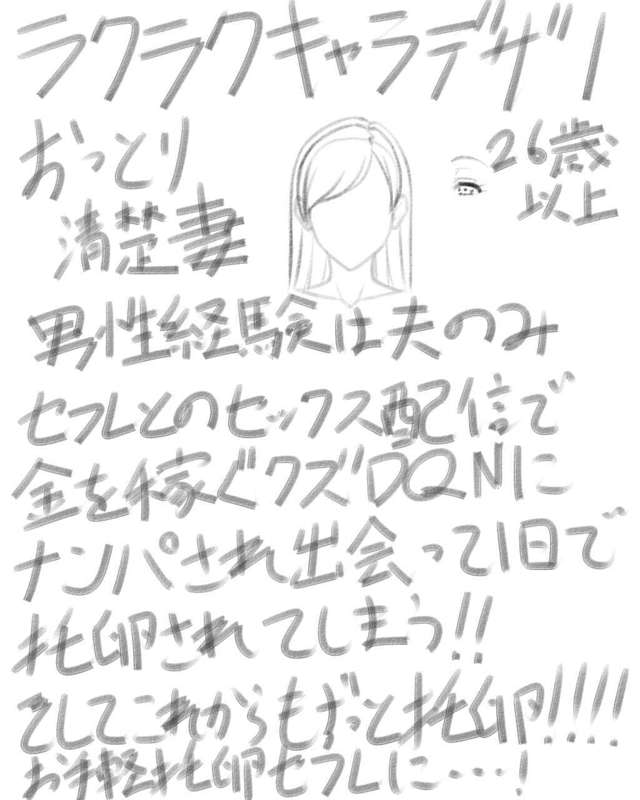 ラクラクキャラデザ!
おっとり
清楚妻
26歳
以上
男性経験は夫のみ
セフレとのセックス配信で
金を稼ぐクズDQNに
ナンパされ出会って1日で
托卵されてしまう!!
そしてこれからもずっと托卵!!!!
お手軽托卵セフレに…!